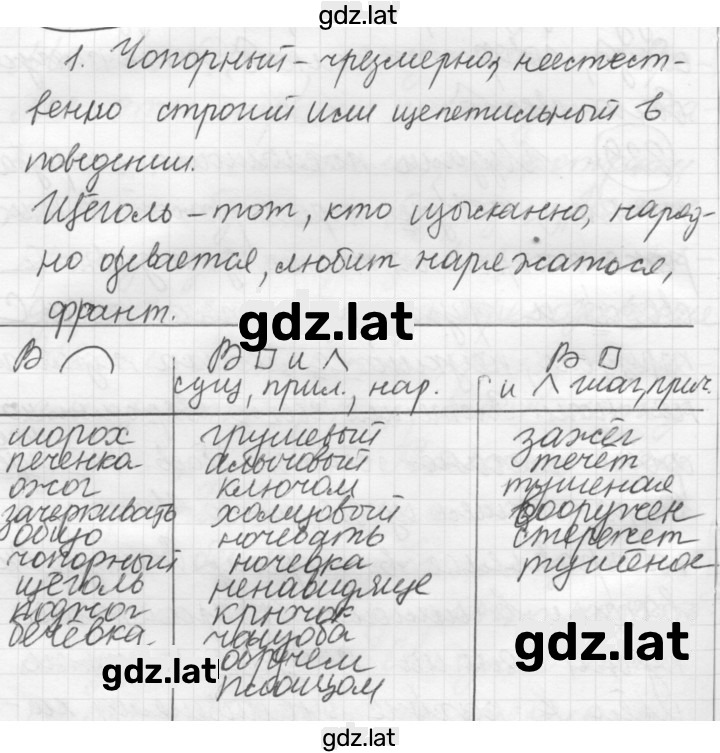 gdz.lat
1. Чопорный – чрезмерно, неестест-
венно строгий или щепетильный в
поведении.
Щёголь – тот, кто изысканно, наряд-
но одевается, любит наряжаться,
франт.
gdz.lat
В
В и
В
сущ, прил., нар.
и глаг, прич.
шорох грушевый зажёг
печенка алычовый течет
ожог ключом тушеная
зачеркивать холщовый вооружен
обще ночевать стережет
чопорный ночевка тушеное
щеголь ненавидяще
поджог крючок
бечёвка. чащоба
обручем
плащом
gdz.lat
gdz.lat
gdz.lat